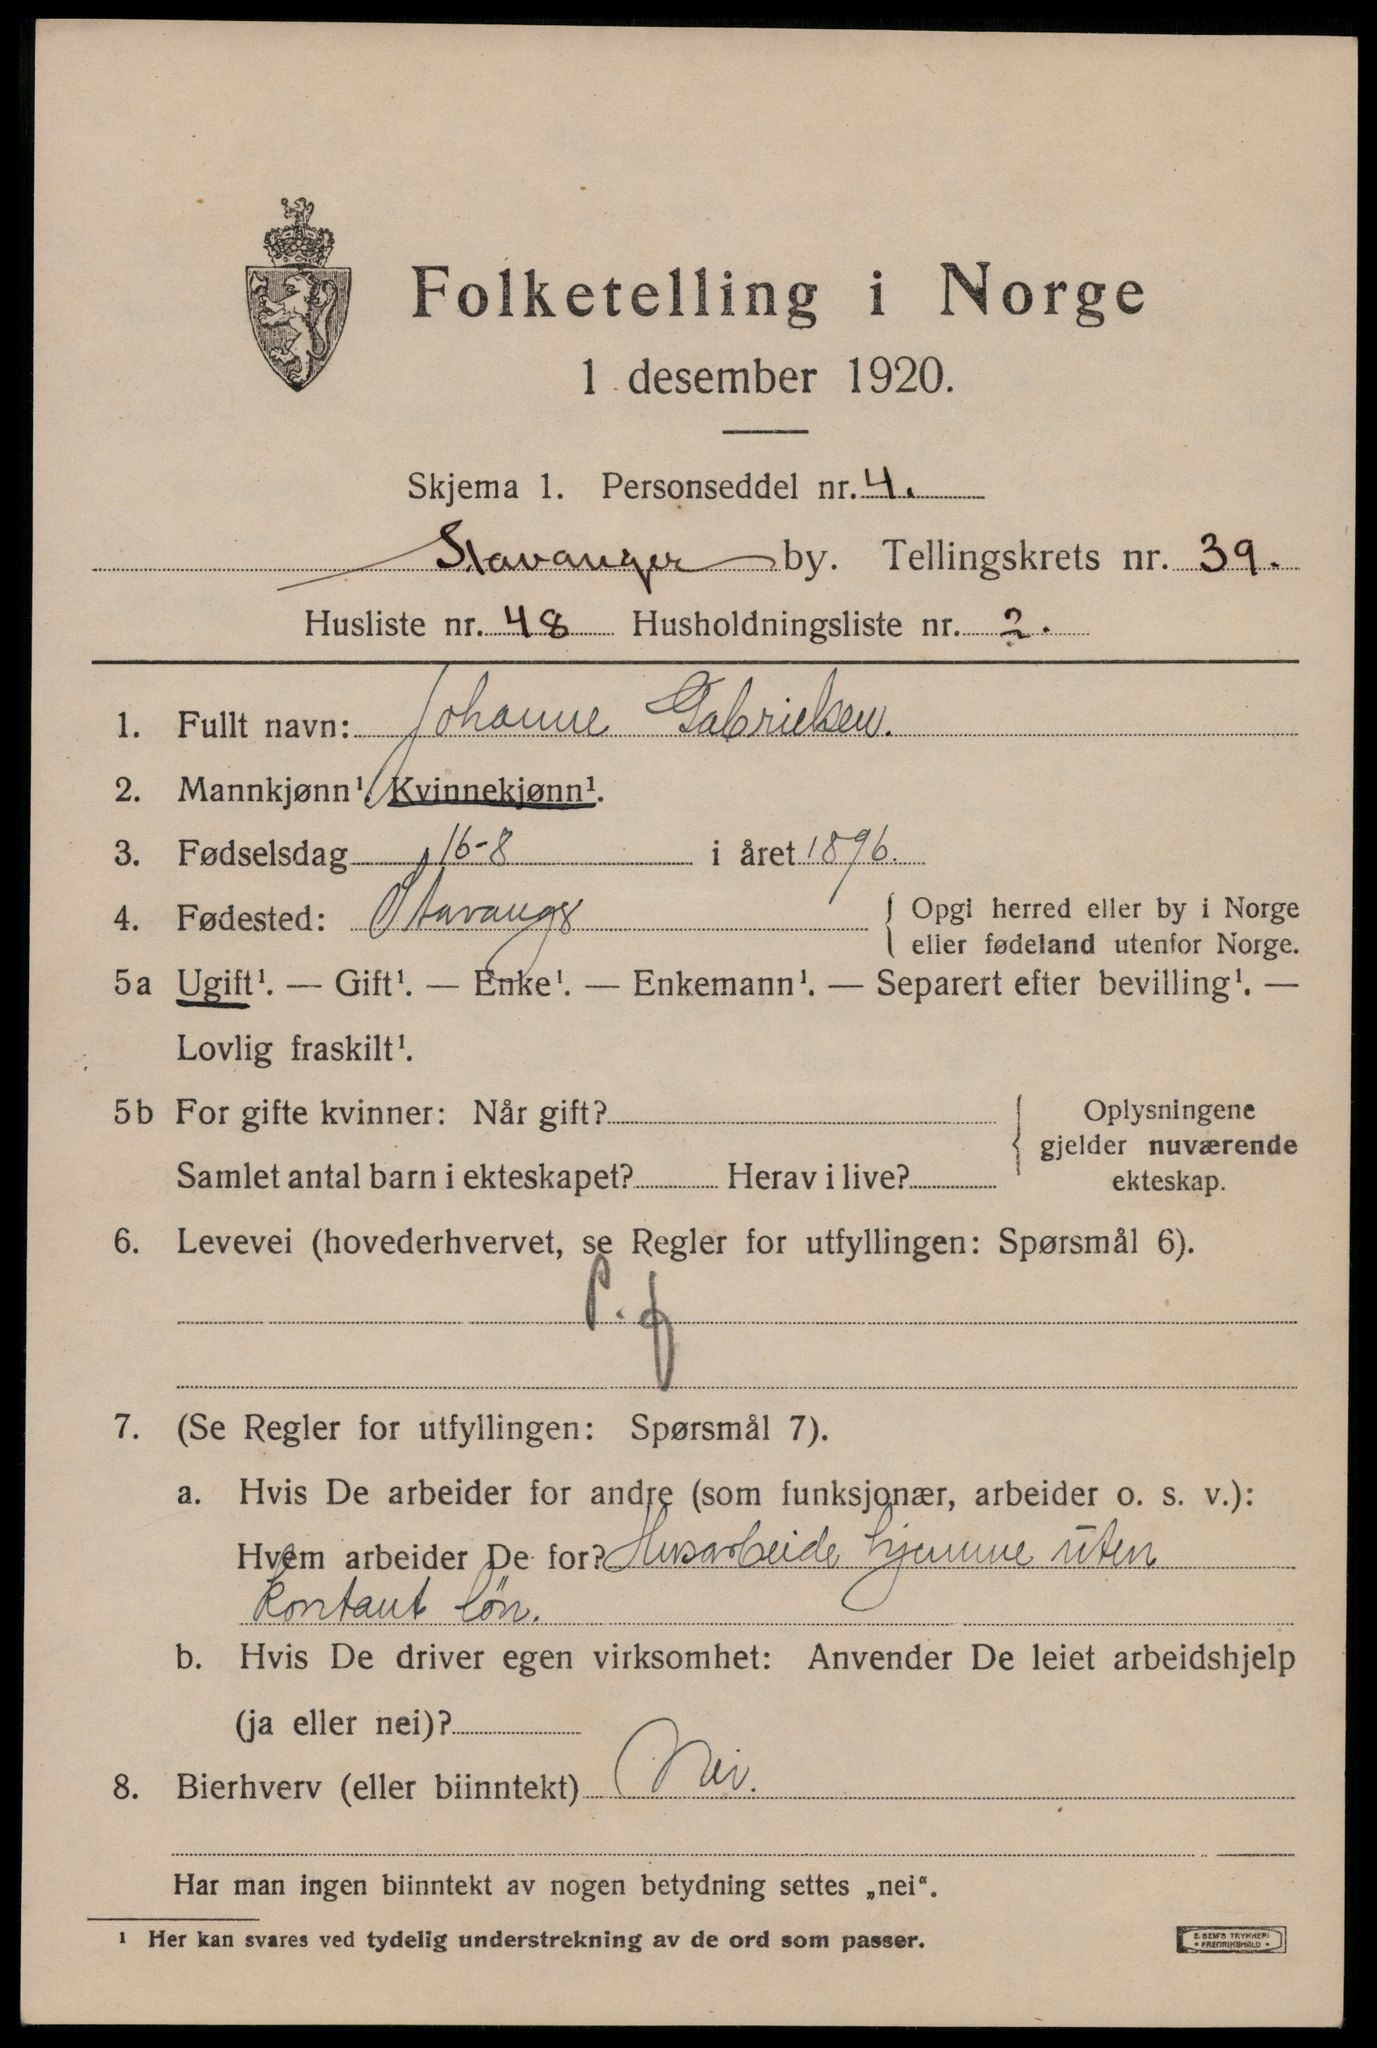 Folketelling i Norge
1 desember 1920.
Skjema 1. Personseddel nr. 4.
Stavanger by. Tellingskrets nr. 39.
Husliste nr. 48 Husholdningsliste nr. 2.
1. Fullt navn: Johanne Gabrielsen.
2. Mannkjønn¹. Kvinnekjønn¹.
3. Fødselsdag 16-8 i året 1896.
4. Fødested: Stavanger { Opgi herred eller by i Norge
eller fødeland utenfor Norge.
5a Ugift¹. — Gift¹. — Enke¹. — Enkemann¹. — Separert efter bevilling¹. —
Lovlig fraskilt¹.
5b For gifte kvinner: Når gift? } Oplysningene
gjelder nuværende
Samlet antal barn i ekteskapet? Herav i live? ekteskap.
6. Levevei (hovederhvervet, se Regler for utfyllingen: Spørsmål 6).
P. f
7. (Se Regler for utfyllingen: Spørsmål 7).
a. Hvis De arbeider for andre (som funksjonær, arbeider o. s. v.):
Hvem arbeider De for? Husarbeide hjemme uten
kontant løn.
b. Hvis De driver egen virksomhet: Anvender De leiet arbeidshjelp
(ja eller nei)?
8. Bierhverv (eller biinntekt) Nei.
Har man ingen biinntekt av nogen betydning settes „nei“.
¹ Her kan svares ved tydelig understrekning av de ord som passer.
E. SEM'S TRYKKERI
• FREDRIKSHALD •